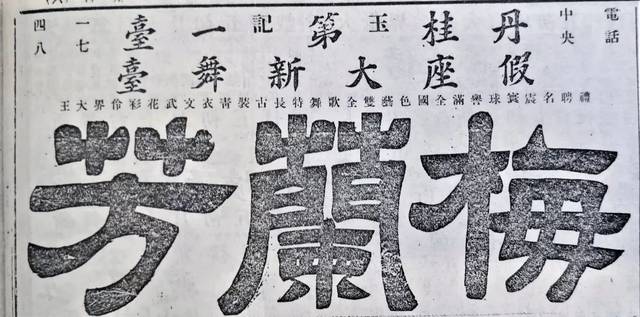 電話
中央
丹桂玉第記一臺
假座大新舞臺
一七
四八
禮聘名震寰球譽滿全國色藝雙全歌舞特長古裝青衣文武花彩伶界大王
梅蘭芳